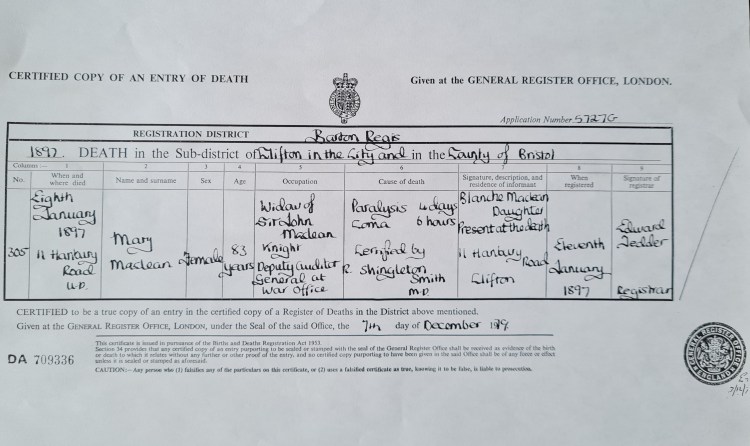 CERTIFIED COPY OF AN ENTRY OF DEATH
Given at the GENERAL REGISTER OFFICE, LONDON.
Application Number 5727G
REGISTRATION DISTRICT Barton Regis
1897. DEATH in the Sub-district of Clifton in the City and in the County of Bristol
Columns :— 1 2 3 4 5 6 7 8 9
No. When and where died Name and surname Sex Age Occupation Cause of death Signature, description, and residence of informant When registered Signature of registrar
305
Eighth
January
1897
11 Hanbury
Road
U.D.
Mary
Maclean
Female
83
years
Widow of
Sir John
Maclean
Knight
Deputy Auditor
General at
War Office
Paralysis 4 days
Coma 6 hours
Certified by
R. Shingleton
Smith
M.D.
Blanche Maclean
Daughter
Present at the death
11 Hanbury
Road
Clifton
Eleventh
January
1897
Edward
Tedder
Registrar
CERTIFIED to be a true copy of an entry in the certified copy of a Register of Deaths in the District above mentioned.
Given at the GENERAL REGISTER OFFICE, LONDON, under the Seal of the said Office, the 7th day of December
This certificate is issued in pursuance of the Births and Deaths Registration Act 1953.
Section 34 provides that any certified copy of an entry purporting to be sealed or stamped with the seal of the General Register Office shall be received as evidence of the birth
or death to which it relates without any further or other proof of the entry, and no certified copy purporting to have been given in the said Office shall be of any force or effect
unless it is sealed or stamped as aforesaid.
DA 709336
CAUTION:— Any person who (1) falsifies any of the particulars on this certificate, or (2) uses a falsified certificate as true, knowing it to be false, is liable to prosecution.
GENERAL REGISTER OFFICE
ENGLAND